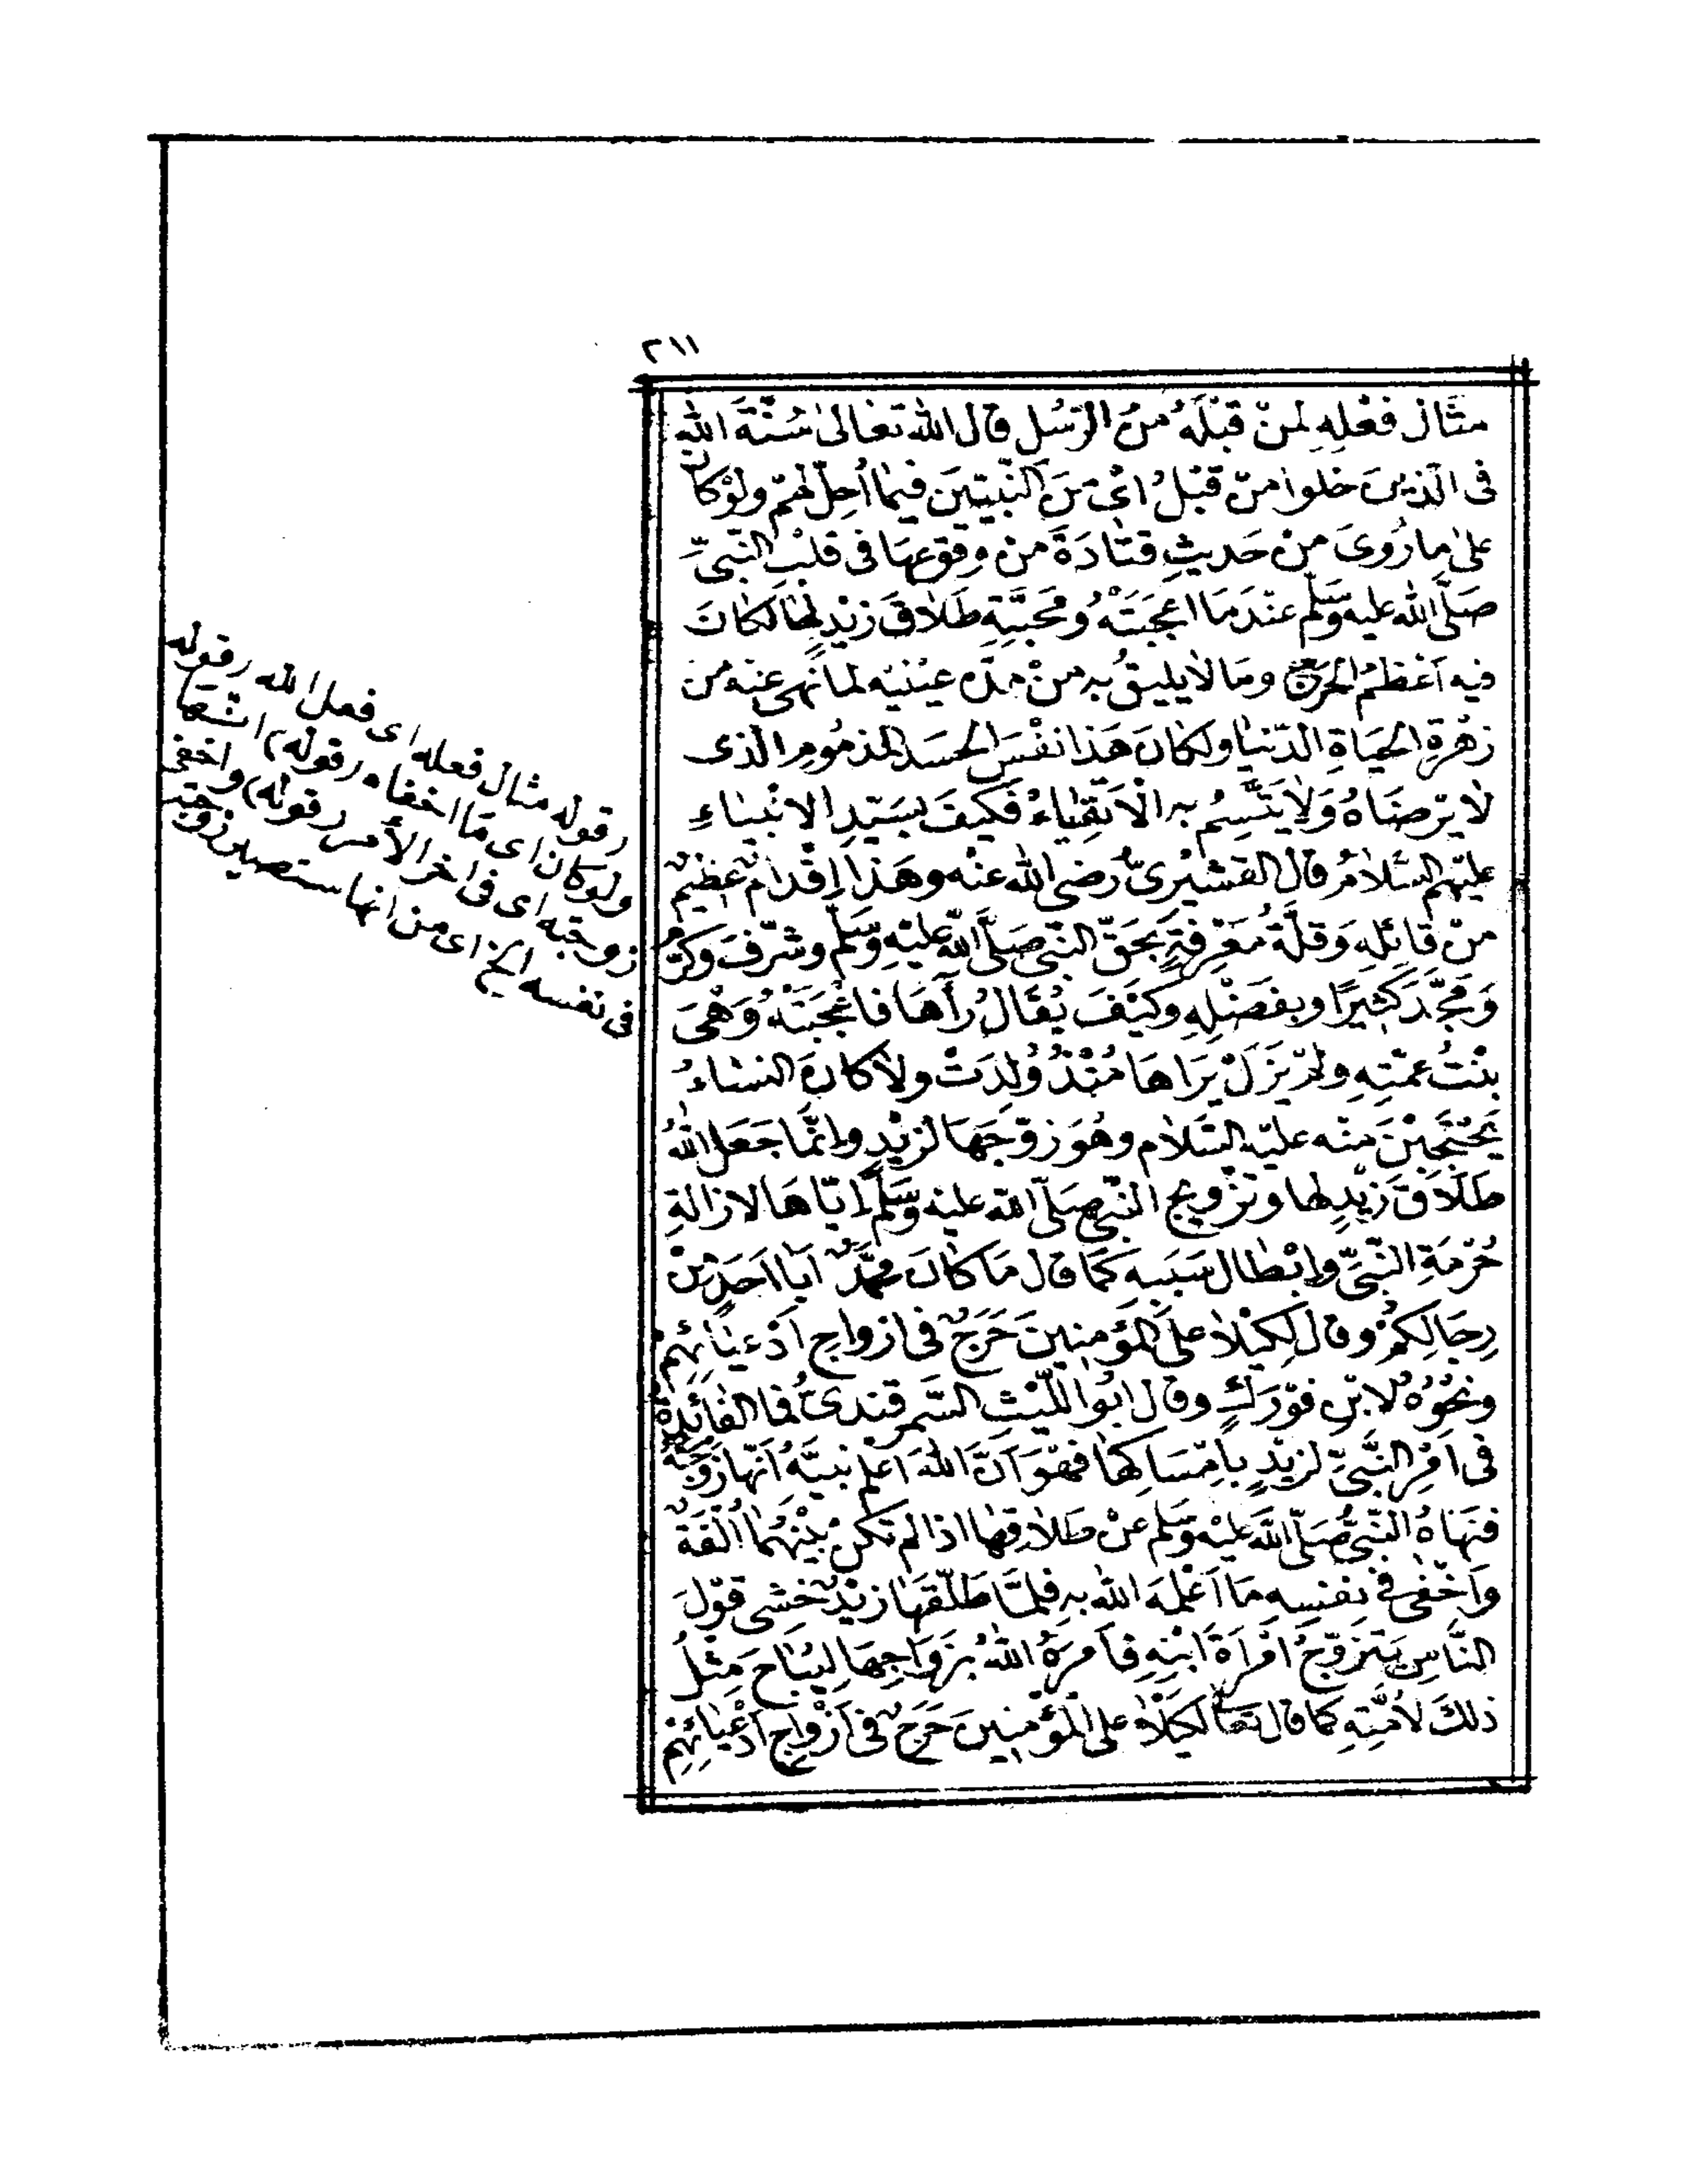 ٢١١
مثَال فعْلِهِ لمَنْ قَبْلَهُ مِنَ الرّسُل قال الله تعَالىٰ سُنّةَ الله
فى الّذينَ خلوا منْ قَبْلُ اىْ مِنَ النّبيّينَ فيمَا أحِلّ لهُمْ ولوْ كانَ
علىٰ ما رُوِىَ مِنْ حَديثِ قتَادَةَ منْ وقوعِهَا فى قلبِ النّبىِّ
صَلّى الله عليه وسَلّم عنْدَمَا اعجَبَتْهُ ومحَبّتِهِ طَلاقَ زيْدٍ لهَا لكَانَ
فيه أعْظمُ الحرَجِ ومَا لا يليقُ به منْ مدّ عيْنيْه لما نُهى عنْه منْ
زَهْرةِ الحيَاةِ الدّنيَا ولكَانَ هَذا نفْسَ الحسَدِ المذمُومِ الّذى
لا يَرْضَاهُ وَلا يتّسِمُ به الأتْقِيَاءُ فكيفَ بسَيّدِ الانْبيَاءِ
عليْهِم السَّلامُ قال القشيْرىُّ رضى الله عنْه وهَذا إقْدامٌ عَظيمٌ
منْ قائلِهِ وَقلّةُ مَعْرفةٍ بحَقّ النّبى صَلّى الله عليْهِ وسَلّم وشرّفَ وكرّمَ
وَمَجّدَ كَثيرًا وبفضْلِهِ وكيْفَ يُقَالُ رَآهَا فاعْجَبَتْهُ وَهْىَ
بنْتُ عَمّتِهِ ولمْ يَزَلْ يَرَاهَا مُنْذُ وُلِدَتْ ولا كانَ النّسَاءُ
يَحْتَجِبْنَ منْه عليْه السَّلام وهُوَ زوّجَهَا لزيْدٍ وانّمَا جَعَل اللهُ
طَلَاقَ زَيْدٍ لها وتزْويج النّبىّ صَلّى الله عليْه وسَلّم ايّاهَا لازالةِ
حُرْمَةِ التّبَنّى وابْطال سَببِه كمَا قال مَا كانَ محمّدٌ أبَا احَدٍ منْ
رجَالِكمْ وقال لِكيْلا يَكُونَ علَى المؤمنِينَ حَرَجٌ فى ازواجِ أدْعيَائِهِمْ
ونحْوُهُ لابْن فوْرَكٍ وقال ابُوا اللّيْثِ السَّمرقندىّ فمَا الفائدةُ
فى أمْرِ النّبىِّ لزيْدٍ بإمْسَاكِهَا فهُوَ أنَّ اللهَ اعلم نبيّهُ أنّهَا زَوْجَتُهُ
فنَهَاهُ النّبىُّ صَلّى الله عليْه وسَلّم عنْ طلاقِهَا اذا لم تكنْ بيْنَهُمَا ألْفَةٌ
وَاَخْفى فى نفسِهِ مَا أعْلمَهُ اللهُ بهِ فلمّا طَلّقَهَا زيْدٌ خشِى قوْلَ
النّاسِ يَتزَوّجُ امْرَأةَ ابْنِهِ فأمَرهُ اللهُ بزَوَاجِهَا ليُبَاحَ مِثْلُ
ذلكَ لأمّتِهِ كما قال تعَالى لكيْلَا يَكونَ على المؤمِنِينَ حَرَجٌ فى أزْواجِ أدْعيَائِهِمْ
(قوله مثال فعله) اى فعل الله (قوله
ولو كان) اى ما اخفاه (قوله) انها
زوجته اى فى اخر الأمر (قوله) واخفى
فى نفسه الخ اى من انها ستصير زوجته